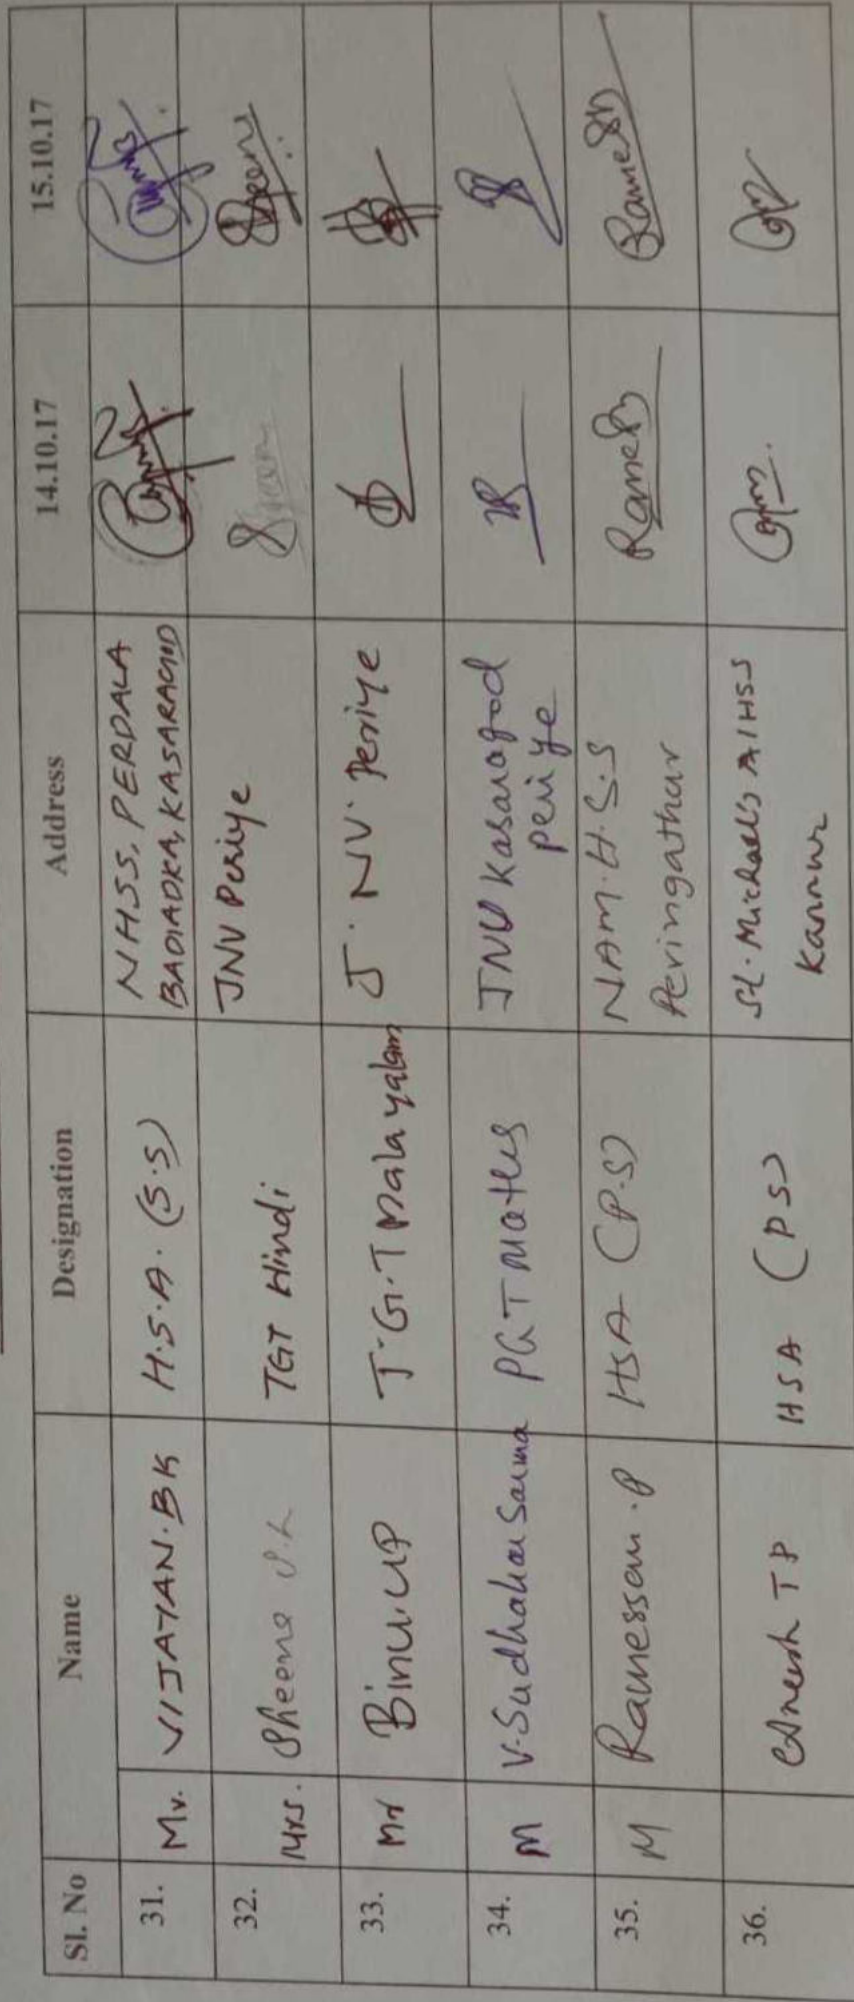 Sl. No Name Designation Address 14.10.17 15.10.17
31. Mr. VIJAYAN.BK H.S.A. (S.S) NHSS, PERDALA
BADIADKA, KASARAGOD
32. Mrs. Sheena TGT Hindi JNV Periye Sheena Sheena
33. Mr Binu.UP T.G.T Malayalam J.NV. Periye
34. M V.Sudhakar Sarma PGT Maths JNV Kasaragod
periye
35. M Ramessan.P HSA (P.S) NAM.H.S.S Ramesh Ramesh
Peringathur
36. Aneesh TP HSA (PS) St. Michael's AIHSS
Kannur